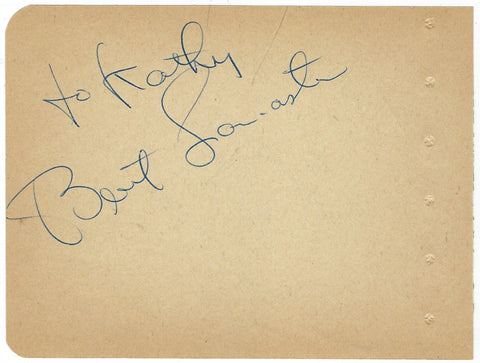 to Kathy
Burt Lancaster